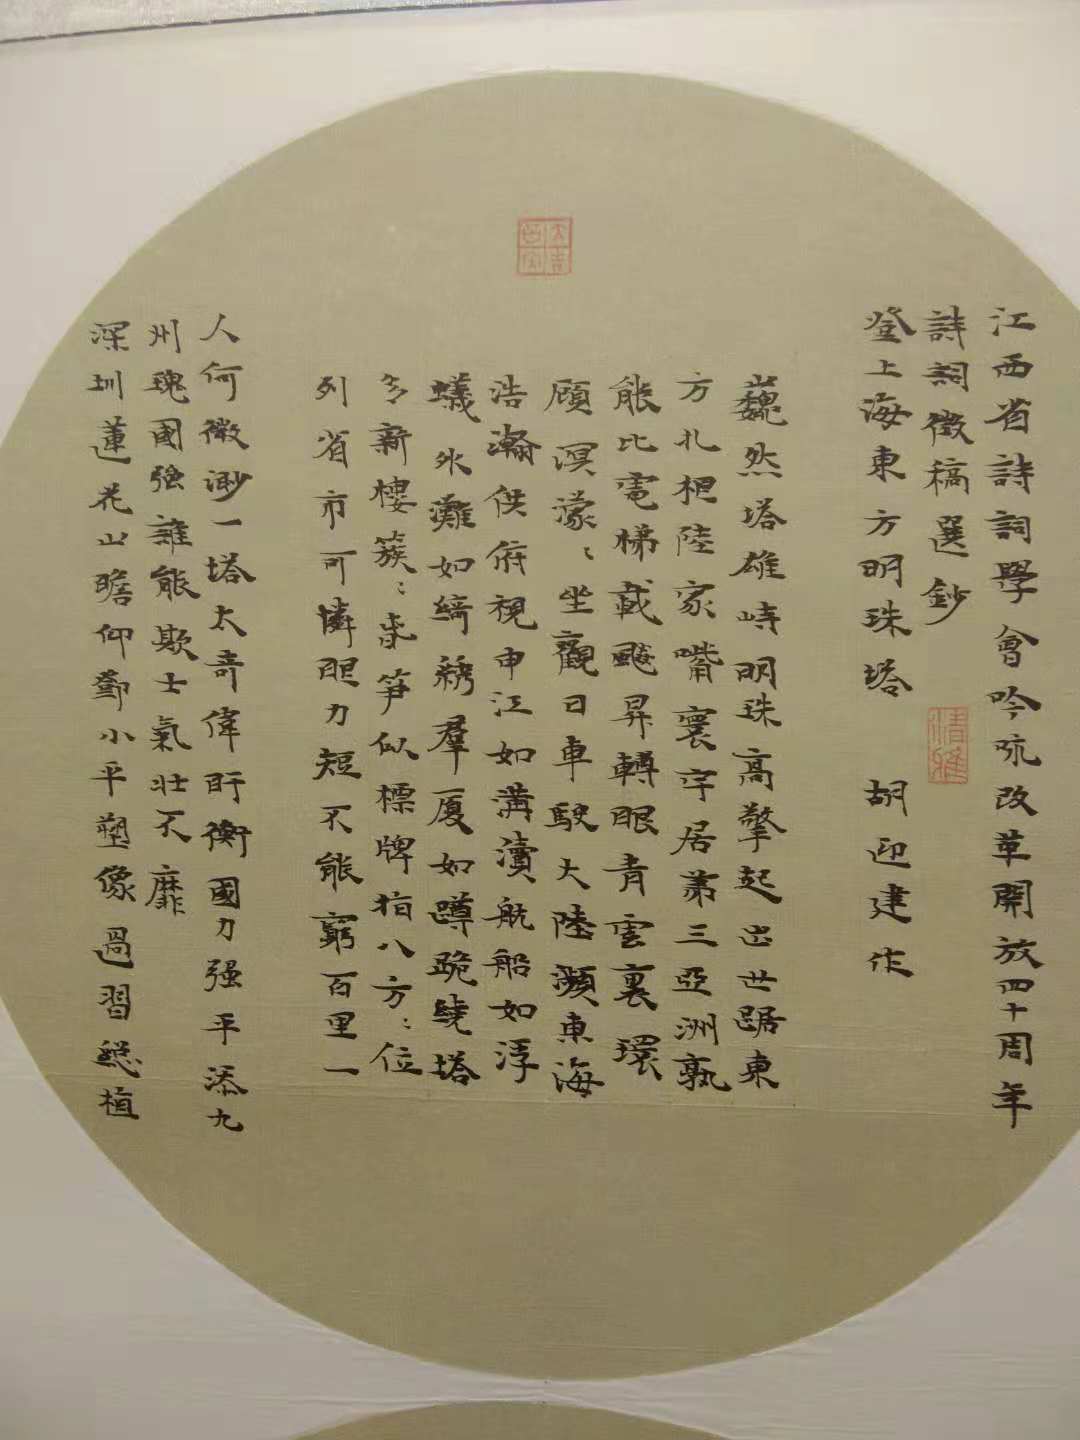 江西省詩詞學會吟咏改革開放四十周年
詩詞徵稿選鈔
登上海東方明珠塔 胡迎建作
巍然塔雄峙明珠高擎起出世踞東
方扎根陸家嘴寰宇居第三亞洲孰
能比電梯載飈昇轉眼青雲裏環
顧溟濛:坐觀日車駛大陸瀕東海
浩瀚供俯視申江如溝瀆航船如浮
蟻外灘如綺綉羣厦如蹲跪繞塔
多新樓簇:春笋似標牌指八方:位
列省市可憐眼力短不能窮百里一
人何微渺一塔太奇偉盱衡國力强平添九
州瑰國强誰能欺士氣壯不靡
深圳蓮花山瞻仰鄧小平塑像過習總植
清雅